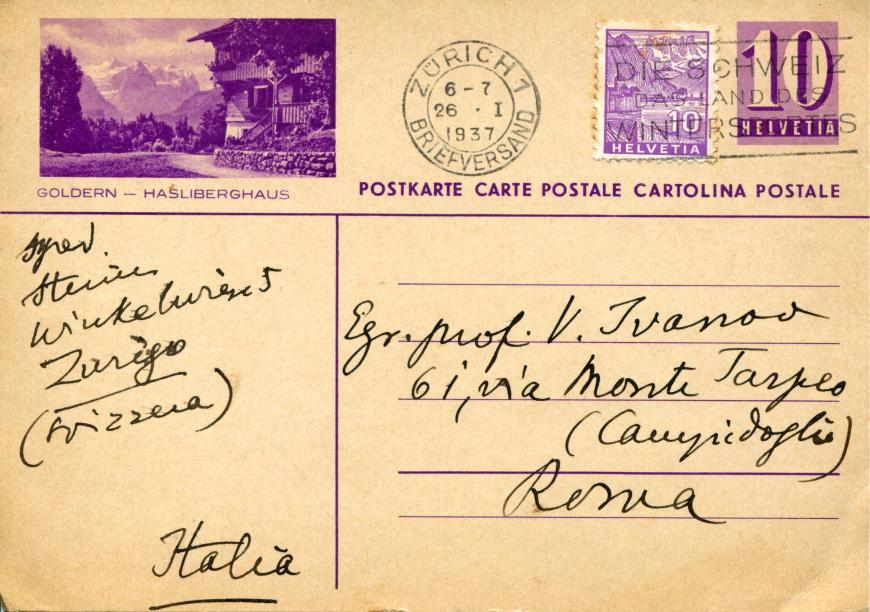 ZÜRICH 1
6-7
26 · I
1937
BRIEFVERSAND
DIE SCHWEIZ
DAS LAND DES
WINTERSPORTES
10
HELVETIA
10
HELVETIA
GOLDERN — HASLIBERGHAUS
POSTKARTE CARTE POSTALE CARTOLINA POSTALE
Sped.
Steiner
Winkelwiese 5
Zurigo
(Svizzera)
Italia
Egr. prof. V. Ivanov
61, via Monte Tarpeo
(Campidoglio)
Roma